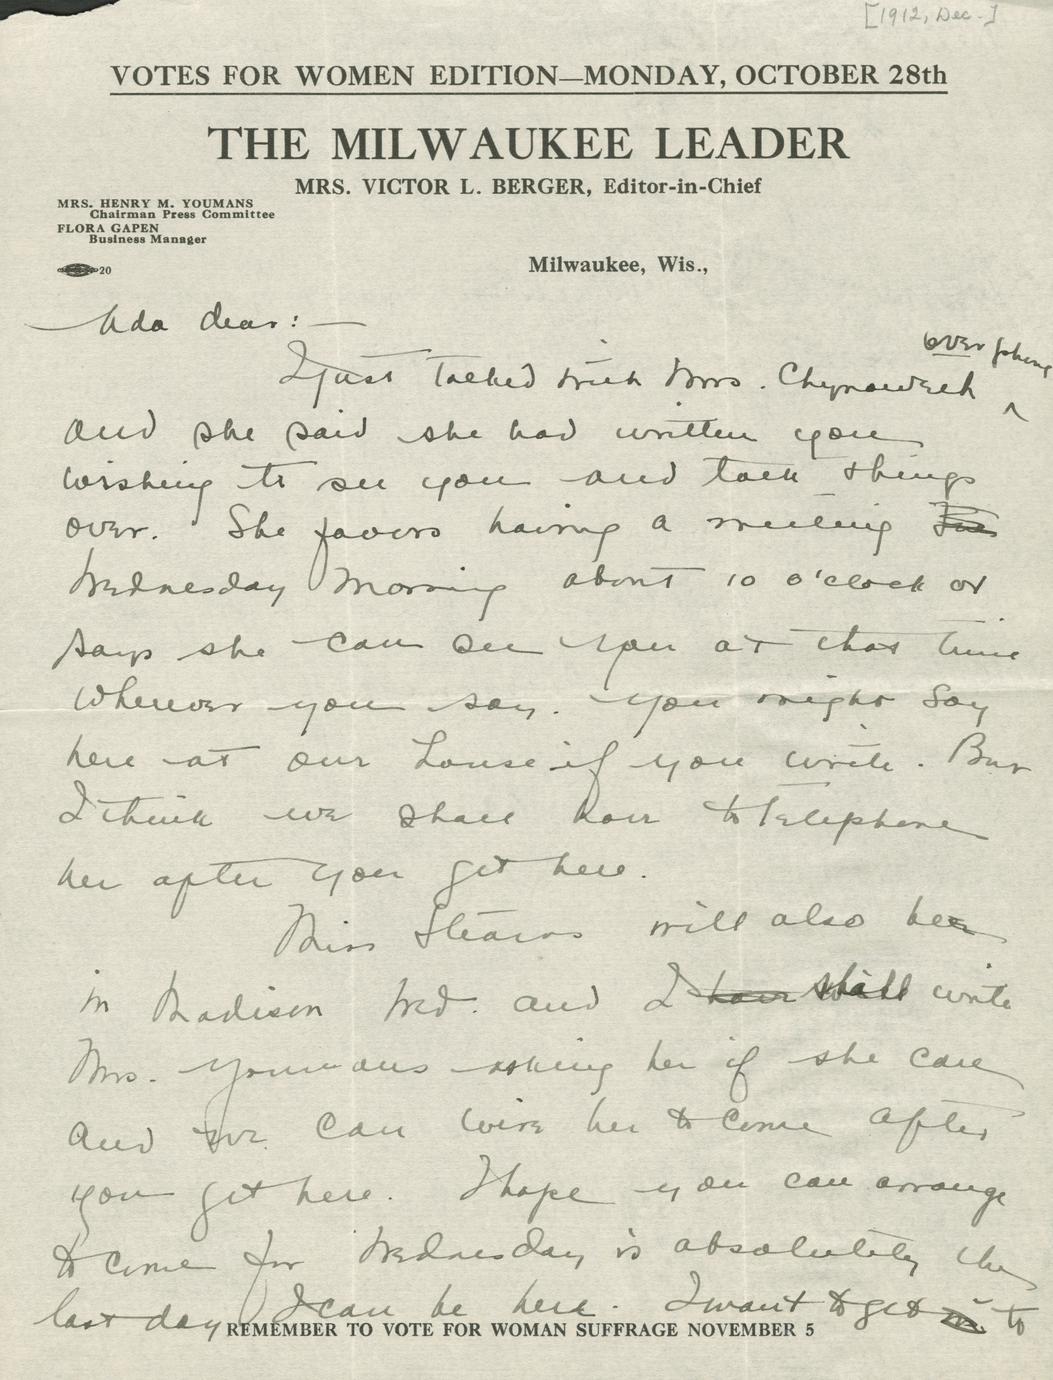 [1912, Dec.]
VOTES FOR WOMEN EDITION—MONDAY, OCTOBER 28th
THE MILWAUKEE LEADER
MRS. VICTOR L. BERGER, Editor-in-Chief
MRS. HENRY M. YOUMANS
Chairman Press Committee
FLORA GAPEN
Business Manager
20
Milwaukee, Wis.,
Ada dear:—
over phone
I just talked with Mrs. Chynoweth ^
and she said she had written you
wishing to see you and talk things
over. She favors having a meeting
Wednesday Morning about 10 o'clock or
says she can see you at that time
wherever you say. You might say
here at our house if you write. But
I think we shall have to telephone
her after you get here.
Miss Stearns will also be
in Madison Wed. and I have shall write
Mrs. Youmans asking her if she can
and we can wire her to come after
you get here. I hope you can arrange
to come for Wednesday is absolutely the
last day I can be here. I want to get to
REMEMBER TO VOTE FOR WOMAN SUFFRAGE NOVEMBER 5